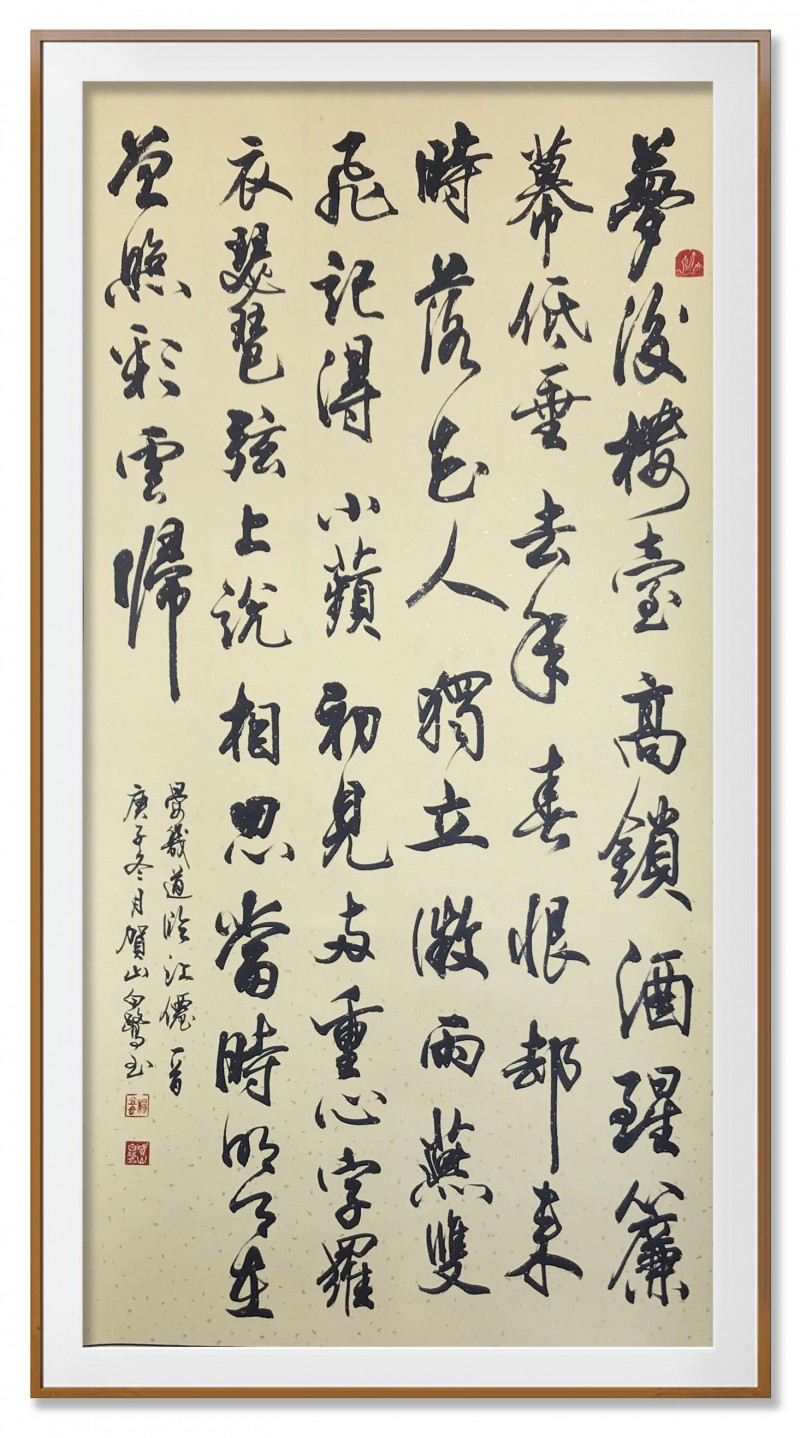 夢後樓臺高鎖酒醒簾
幕低垂去年春恨却来
時落花人獨立微雨燕雙
飛記得小蘋初見兩重心字羅
衣琵琶弦上說相思當時明月在
曾照彩雲歸
晏幾道臨江僊一首
庚子冬月賀山白鷺书